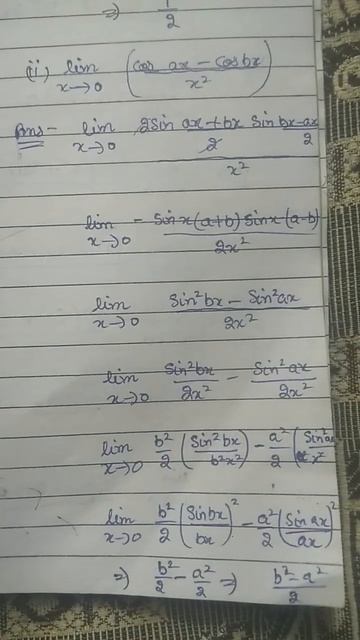 ⇒ 1/2
(ii) lim x→0 (cos ax − cos bx / x²)
Ans- lim x→0 2sin ax+bx / 2 sin bx-ax / 2 / x²
lim x→0 − sin x(a+b) sin x(a-b) / 2x²
lim x→0 sin²bx − sin²ax / 2x²
lim x→0 sin²bx / 2x² − sin²ax / 2x²
lim x→0 b²/2 (sin²bx / b²x²) − a²/2 (sin²a x²
lim x→0 b²/2 (sin bx / bx)² − a²/2 (sin ax / ax)²
⇒ b²/2 − a²/2 ⇒ b²−a² / 2